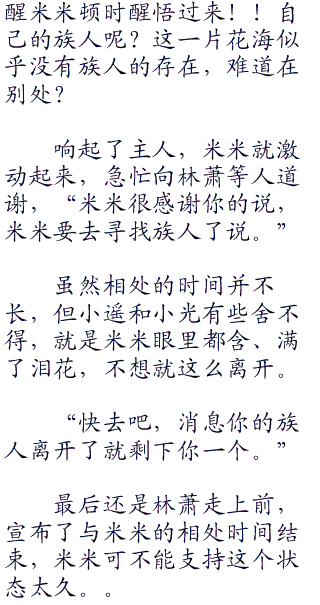 醒米米顿时醒悟过来！！自
己的族人呢？这一片花海似
乎没有族人的存在，难道在
别处？
响起了主人，米米就激
动起来，急忙向林萧等人道
谢，“米米很感谢你的说，
米米要去寻找族人了说。”
虽然相处的时间并不
长，但小遥和小光有些舍不
得，就是米米眼里都含、满
了泪花，不想就这么离开。
“快去吧，消息你的族
人离开了就剩下你一个。”
最后还是林萧走上前，
宣布了与米米的相处时间结
束，米米可不能支持这个状
态太久。。